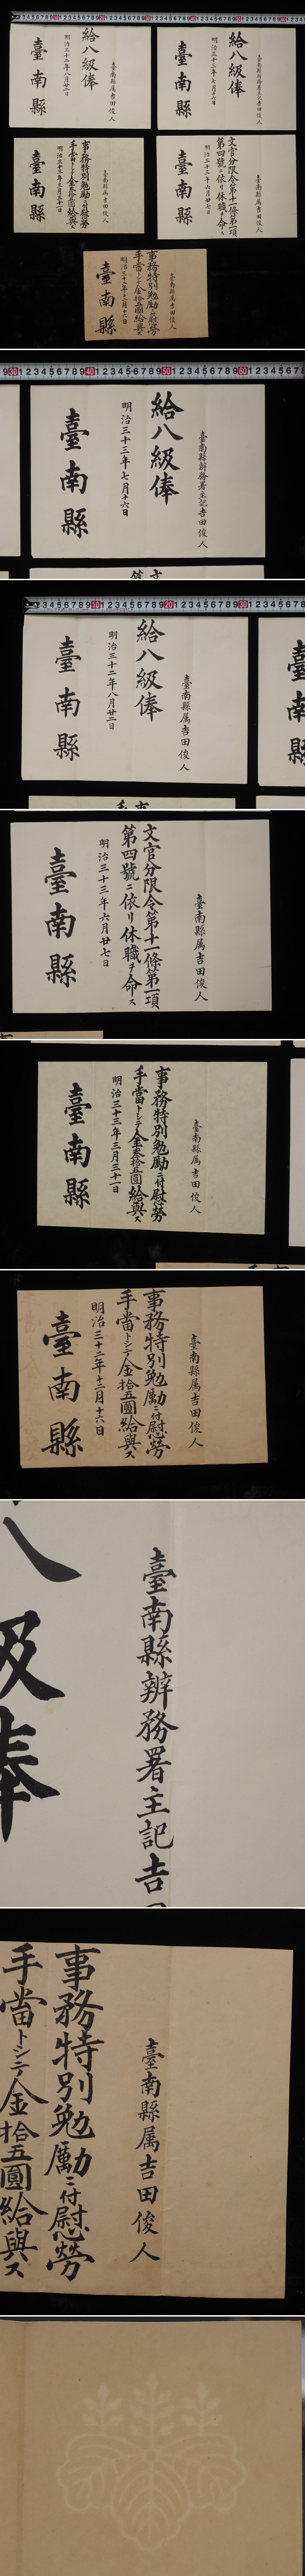 臺南縣属吉田俊人
給八級俸
明治三十二年八月廿二日
臺南縣
臺南縣辨務署主記吉田俊人
給八級俸
明治三十三年七月十六日
臺南縣
臺南縣属吉田俊人
事務特別勉勵ニ付慰勞
手當トシテ金叁拾五圓給與ス
明治三十三年三月三十一日
臺南縣
臺南縣属吉田俊人
文官分限令第十一條第一項
第四號ニ依リ休職ヲ命ス
明治三十三年六月廿七日
臺南縣
臺南縣属吉田俊人
事務特別勉勵ニ付慰勞
手當トシテ金拾五圓給與ス
明治三十二年十二月十六日
臺南縣
臺南縣辨務署主記吉田俊人
給八級俸
明治三十三年七月十六日
臺南縣
臺南縣属吉田俊人
給八級俸
明治三十二年八月廿二日
臺南縣
臺南縣属吉田俊人
文官分限令第十一條第一項
第四號ニ依リ休職ヲ命ス
明治三十三年六月廿七日
臺南縣
臺南縣属吉田俊人
事務特別勉勵ニ付慰勞
手當トシテ金叁拾五圓給與ス
明治三十三年三月三十一日
臺南縣
臺南縣属吉田俊人
事務特別勉勵ニ付慰勞
手當トシテ金拾五圓給與ス
明治三十二年十二月十六日
臺南縣
臺南縣辨務署主記吉
八級俸
臺南縣属吉田俊人
事務特別勉勵ニ付慰勞
手當トシテ金拾五圓給與ス